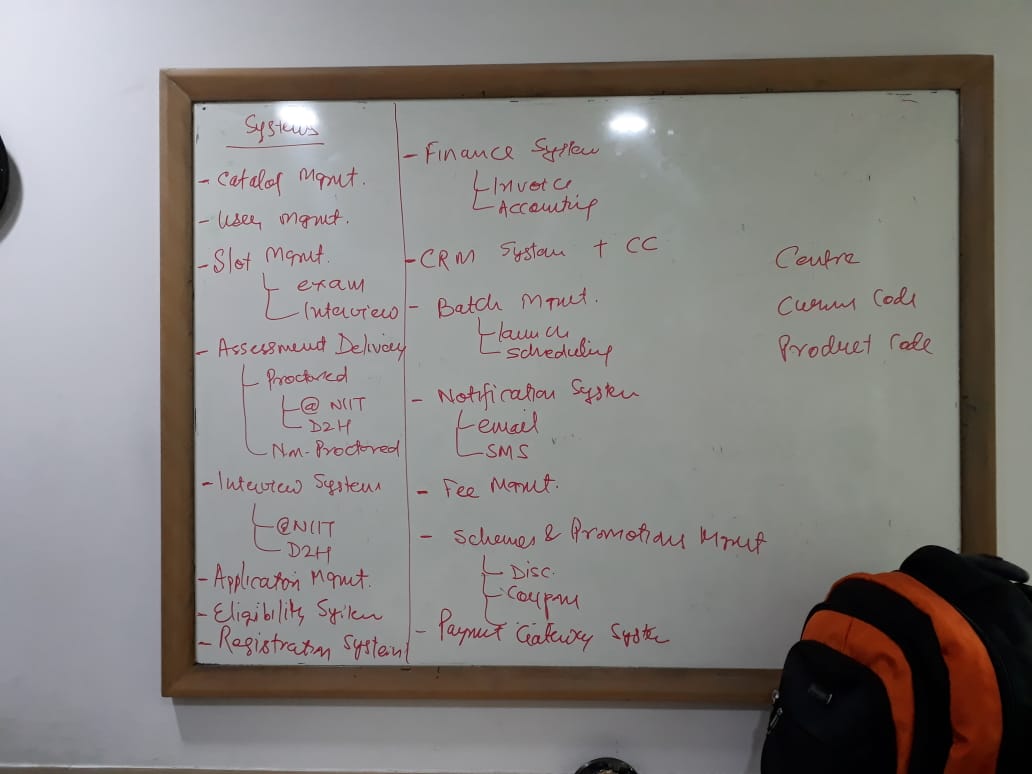 Systems
- Catalog Mgmt.
- User Mgmt.
- Slot Mgmt.
exam
Interview
- Assessment Delivery
Proctored
@ NIIT
D2H
Nm-Proctored
- Interview System
@NIIT
D2H
- Application Mgmt.
- Eligibility System
- Registration System
- Finance System
Invoice
Accounting
- CRM System + CC
- Batch Mgmt.
launch
scheduling
- Notification System
email
SMS
- Fee Mgmt.
- Schemes & Promotions Mgmt
Disc.
Coupons
- Payment Gateway System
Centre
Code
Product Code